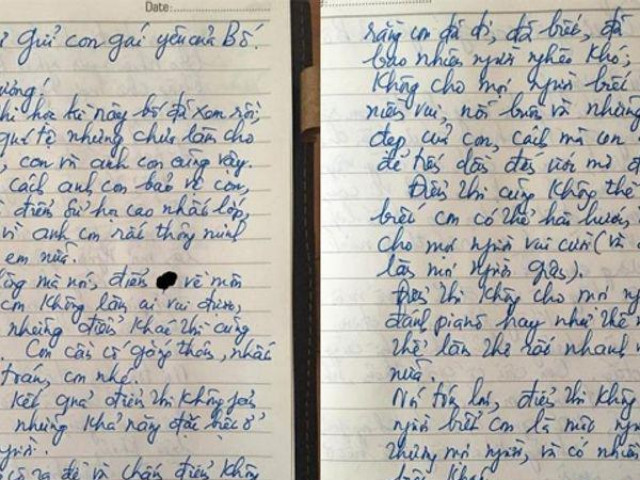 Date:
gửi con gái yêu của Bố.
ương!
thi học kỳ này bố đã xem rồi,
quá tệ nhưng chưa làm cho
, con và anh con cũng vậy.
cách anh con bảo vệ con,
điểm Sử họ cao nhất lớp,
vì anh con rất thông minh
em nữa.
mà nói, điểm về môn
con không làm ai vui được,
những điểm khác thì cũng
. Con cần cố gắng thêm, nhất
trán, con nhé.
kết quả điểm thi không
những khả năng đặc biệt ở
người.
ra đề và chấm điểm không
rằng con đã đi, đã biết, đã
bao nhiêu người nghèo khó;
Không cho mọi người biết
niềm vui, nỗi buồn và những
đẹp của con, cách mà con
để tiến dần đến ước mơ
Điểm thi cũng không thể
biết con có thể hài hước,
cho mọi người vui cười (và
làm mọi người giận).
Điểm thi không cho mọi
đánh pianô hay như thế
thể làm thơ rất nhanh
nữa.
Nói tóm lại, điểm thi không
người biết con là một
thương mọi người, và có nhiều